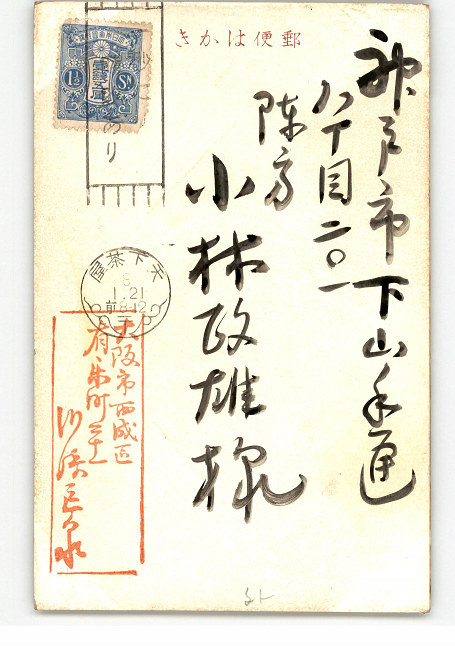 郵便はかき
神戸市下山手通
八丁目二〇一
陳方
小林政雄様
大日本帝國郵便
壹錢五厘
1½ Sn
あり
天下茶屋
6
1.21
前8-12
大阪市西成区